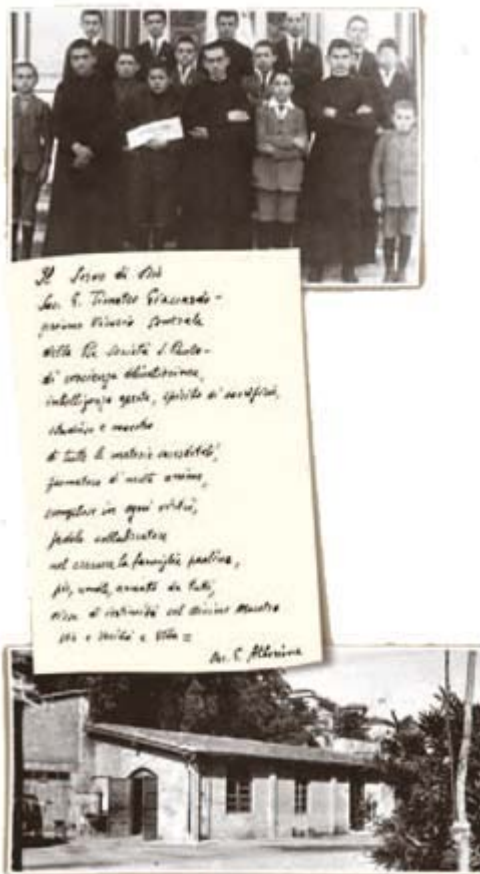 Il Servo di Dio
Sac. G. Timoteo Giaccardo -
primo Vicario Generale
della Pia Società S. Paolo -
di coscienza
intelligenza aperta, spirito di sacrificio,
studioso e maestro
di tutte le materie
formatore di molte anime,
esemplare in ogni virtù,
fedele collaboratore
nel creare la famiglia paolina,
pio, umile, amato da tutti,
visse d'intimità col divino Maestro
Via e Verità e Vita =
Sac. G. Alberione